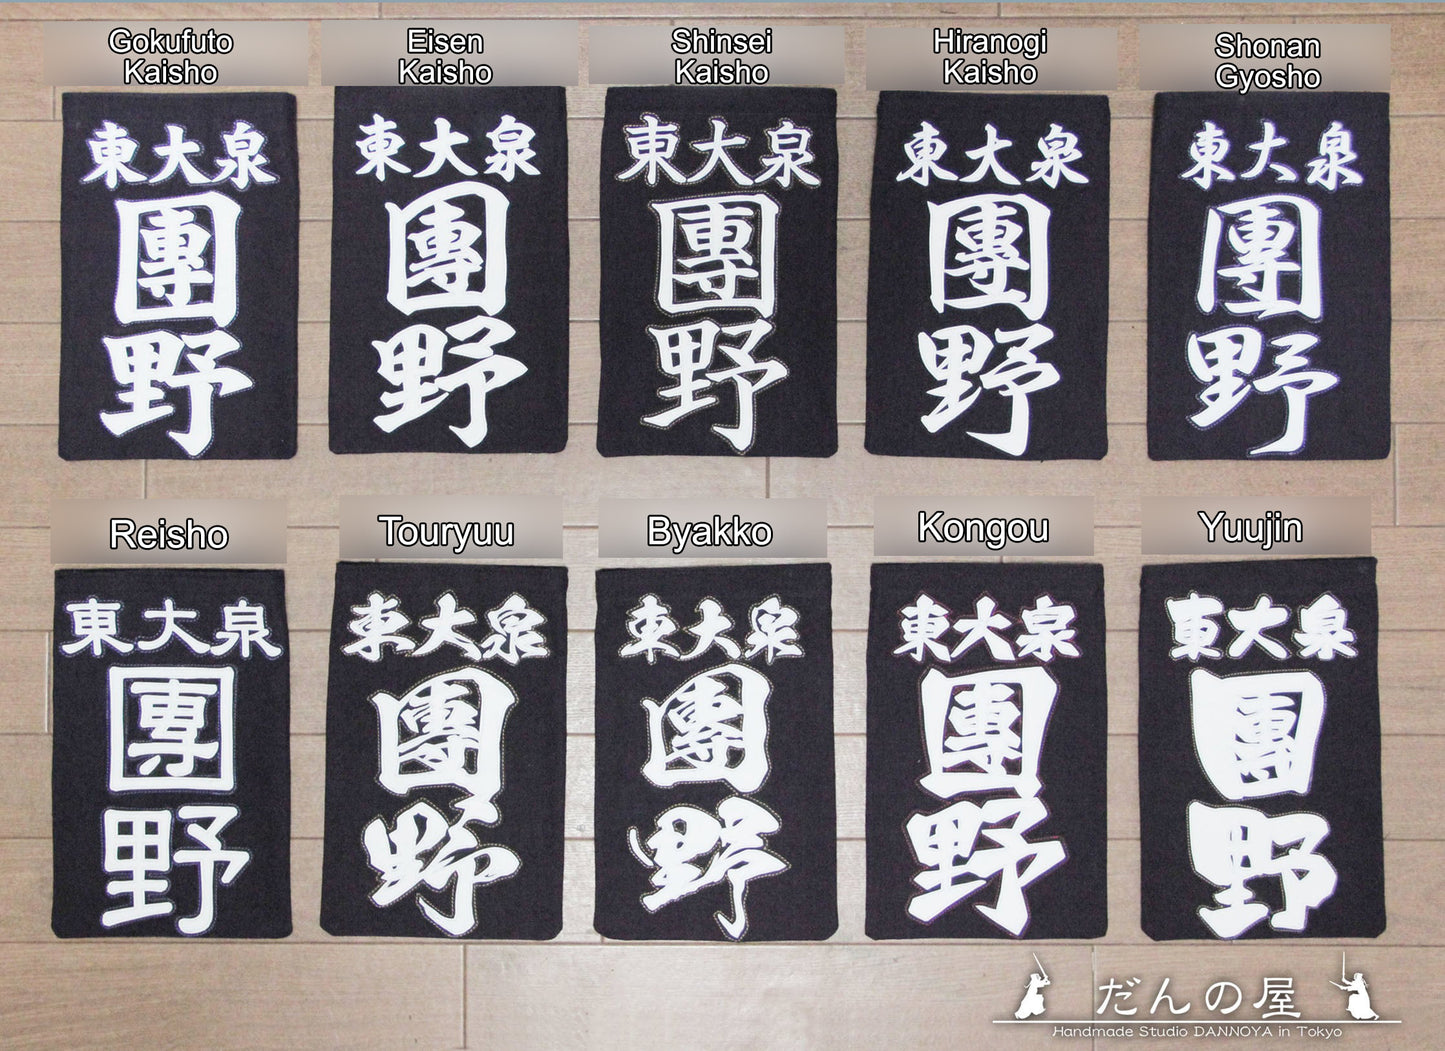 Gokufuto
Kaisho
Eisen
Kaisho
Shinsei
Kaisho
Hiranogi
Kaisho
Shonan
Gyosho
東大泉
團
野
東大泉
團
野
東大泉
團
野
東大泉
團
野
東大泉
團
野
Reisho
Touryuu
Byakko
Kongou
Yuujin
東大泉
團
野
東大泉
團
野
東大泉
團
野
東大泉
團
野
東大泉
團
野
だんの屋
Handmade Studio DANNOYA in Tokyo